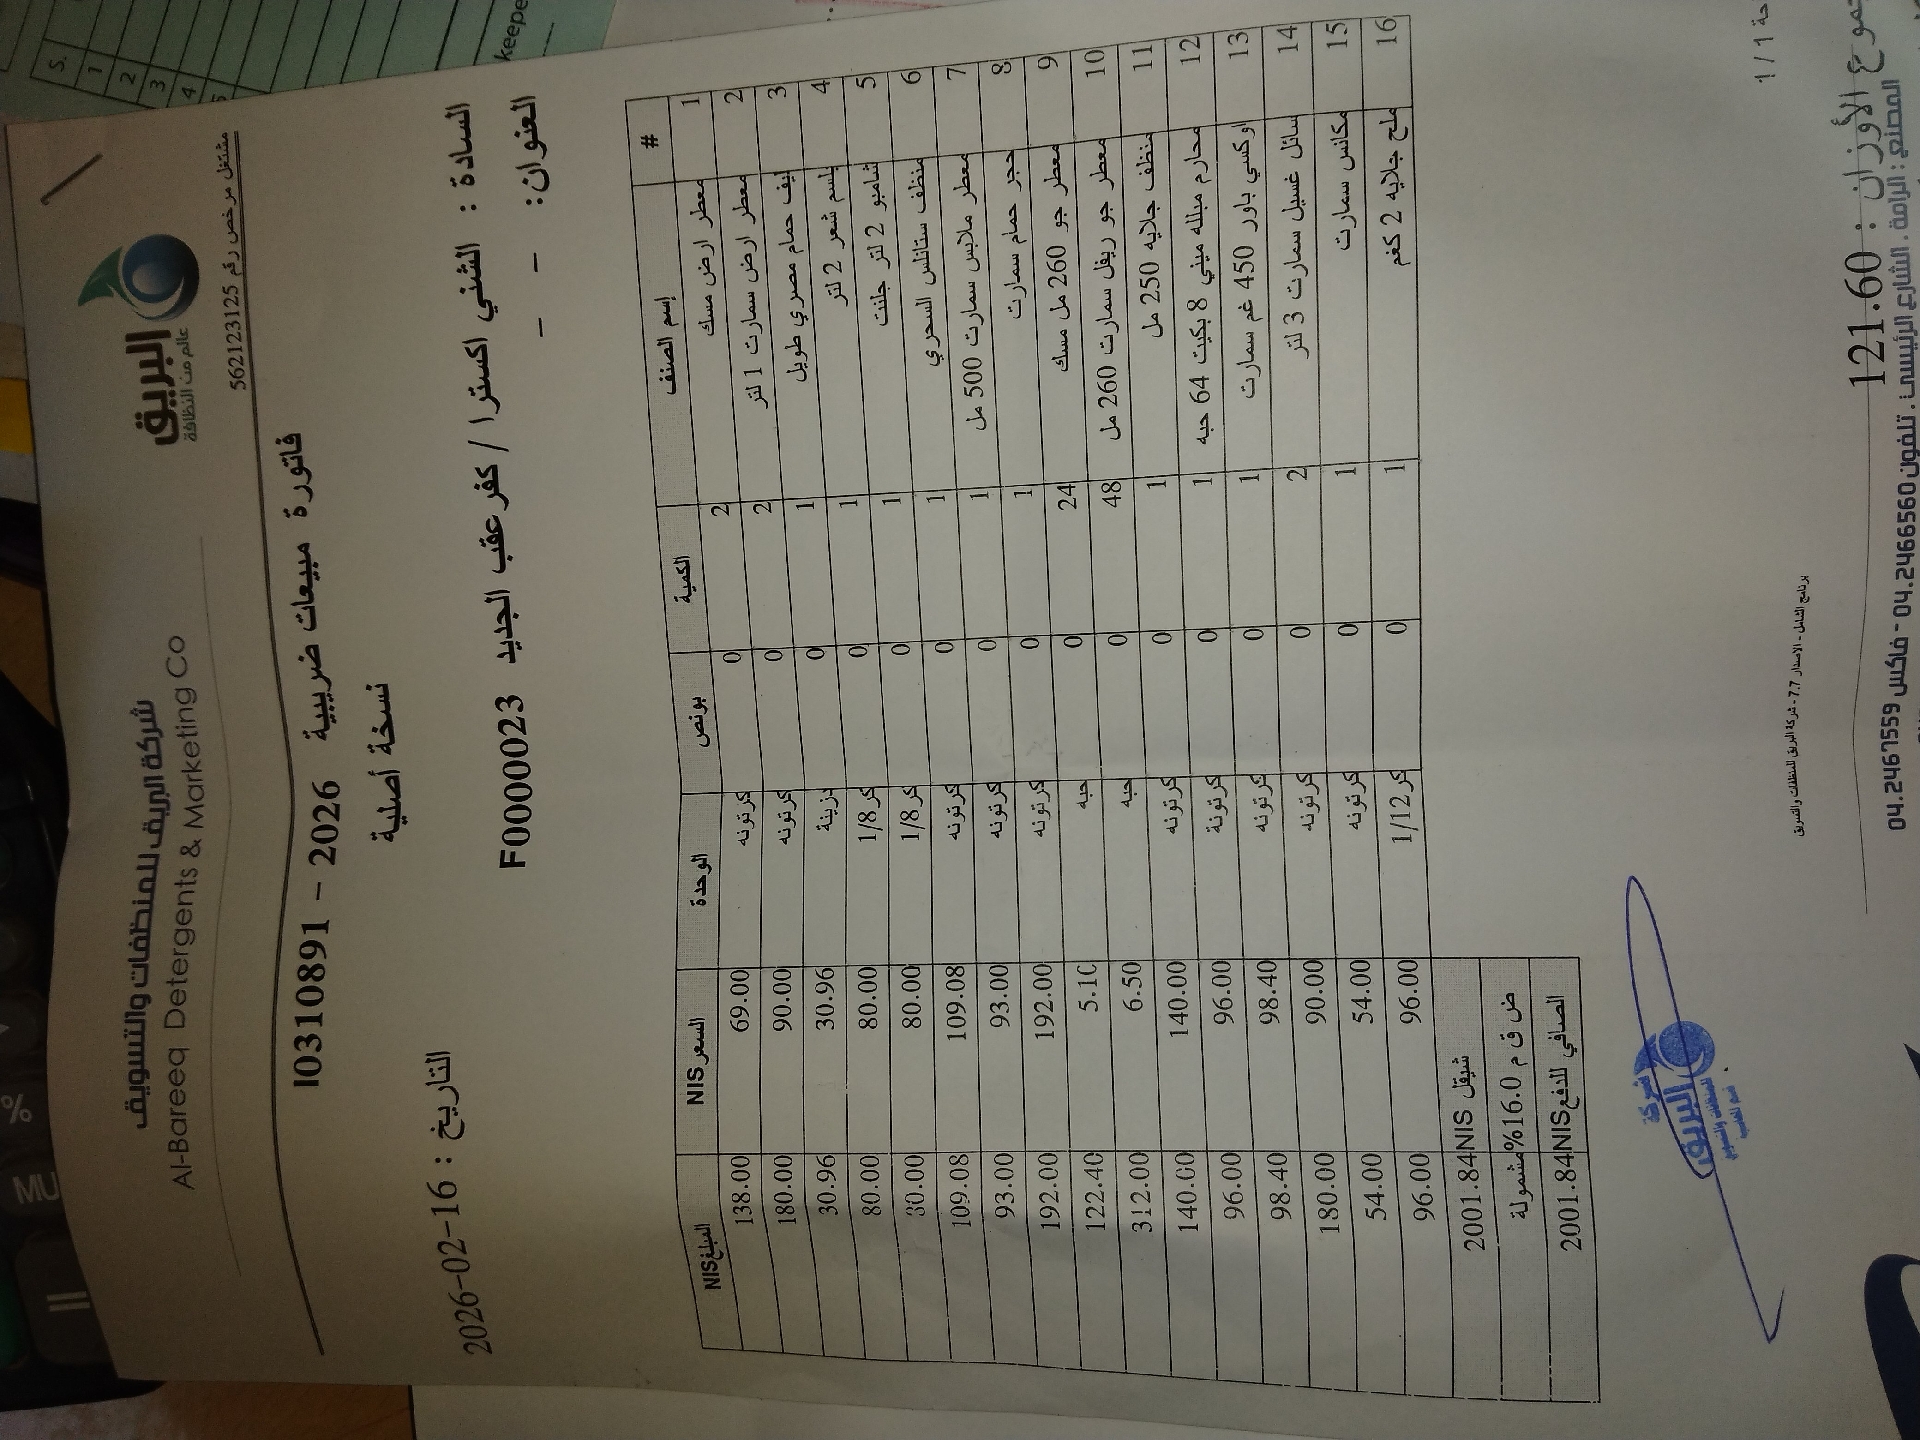 شركة البريق للمنظفات والتسويق
Al-Bareeq Detergents & Marketing Co
البريق
عالم من النظافة
مشتغل مرخص رقم 562123125
فاتورة مبيعات ضريبية 2026 - I0310891
نسخة أصلية
التاريخ : 2026-02-16
السادة : الشني اكسترا / كفر عقب الجديد F0000023
العنوان: - -
# إسم الصنف الكمية بونص الوحدة السعر NIS المبلغ NIS
1 معطر ارض مسك 2 0 كرتونه 69.00 138.00
2 معطر ارض سمارت 1 لتر 2 0 كرتونه 90.00 180.00
3 ليف حمام مصري طويل 1 0 درينة 30.96 30.96
4 بلسم شعر 2 لتر 1 0 كر 1/8 80.00 80.00
5 شامبو 2 لتر جلنت 1 0 كر 1/8 80.00 80.00
6 منظف ستانلس السحري 1 0 كرتونه 109.08 109.08
7 معطر ملابس سمارت 500 مل 1 0 كرتونه 93.00 93.00
8 حجر حمام سمارت 1 0 كرتونه 192.00 192.00
9 معطر جو 260 مل مسك 24 0 حبه 5.10 122.40
10 معطر جو ريفل سمارت 260 مل 48 0 حبه 6.50 312.00
11 منظف جلايه 250 مل 1 0 كرتونه 140.00 140.00
12 محارم مبلله ميني 8 بكيت 64 حبه 1 0 كرتونة 96.00 96.00
13 اوكسي باور 450 غم سمارت 1 0 كرتونه 98.40 98.40
14 سائل غسيل سمارت 3 لتر 2 0 كرتونه 90.00 180.00
15 مكانس سمارت 1 0 كرتونه 54.00 54.00
16 ملح جلايه 2 كغم 1 0 كر 1/12 96.00 96.00
شيقل 2001.84NIS
ض ق م 16.0% مشمولة
الصافي للدفع 2001.84NIS
شركة
البريق
1 / 1
برنامج الشامل - الاصدار 7.7 - شركة البريق للمنظفات والتسويق
مجموع الأوزان : 121.60
المصنع : الرامة . الشارع الرئيسي . تلفون 04.2466560 - فاكس 04.2467559
S.
1
2
3
4
5
keepe
%
MU